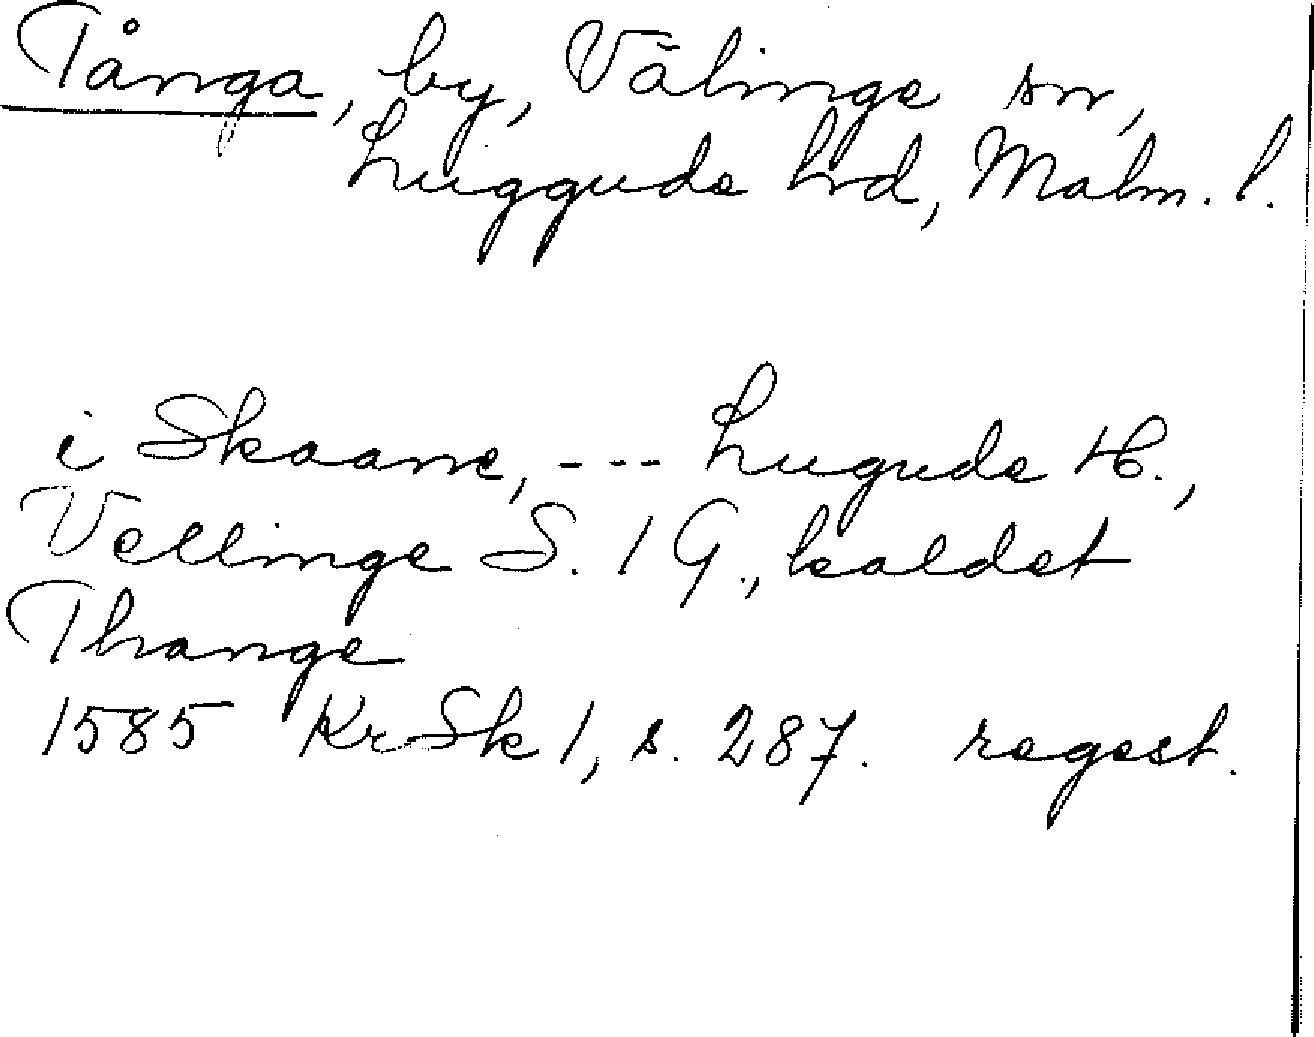 Tånga, by, Välinge sn,
Luggude hrd, Malm. l.
i Skaane, --- Lugude H.,
Vellinge S. 1 G., kaldet
Thange
1585 KrSk 1, s. 287. regest.